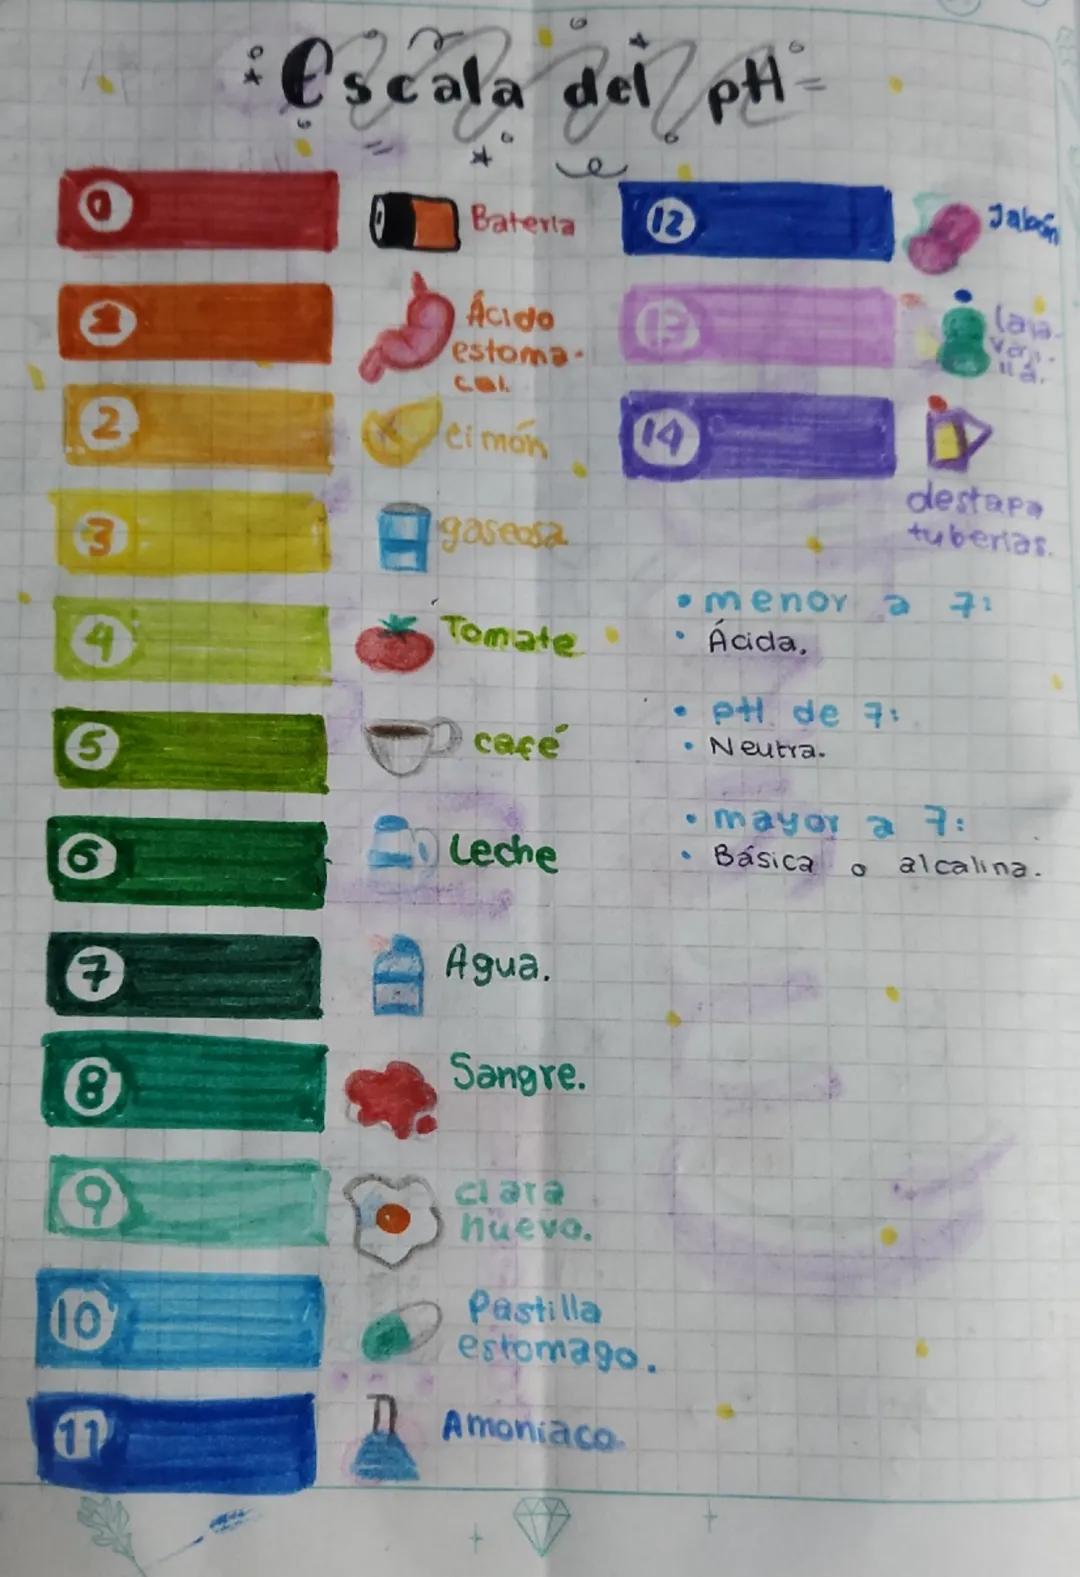 Escala del pH
0 Bateria
1 Ácido
estoma-
cal.
2 Limón
3 gaseosa
4 Tomate
5 café
6 Leche
7 Agua.
8 Sangre.
9 clara
huevo.
10 Pastilla
estomago.
11 Amoniaco.
12 Jabón
13 lava-
vaji-
lla.
14
destapa
tuberias.
• menor a 7:
• Ácida.
• pH de 7:
• Neutra.
• mayor a 7:
• Básica o alcalina.